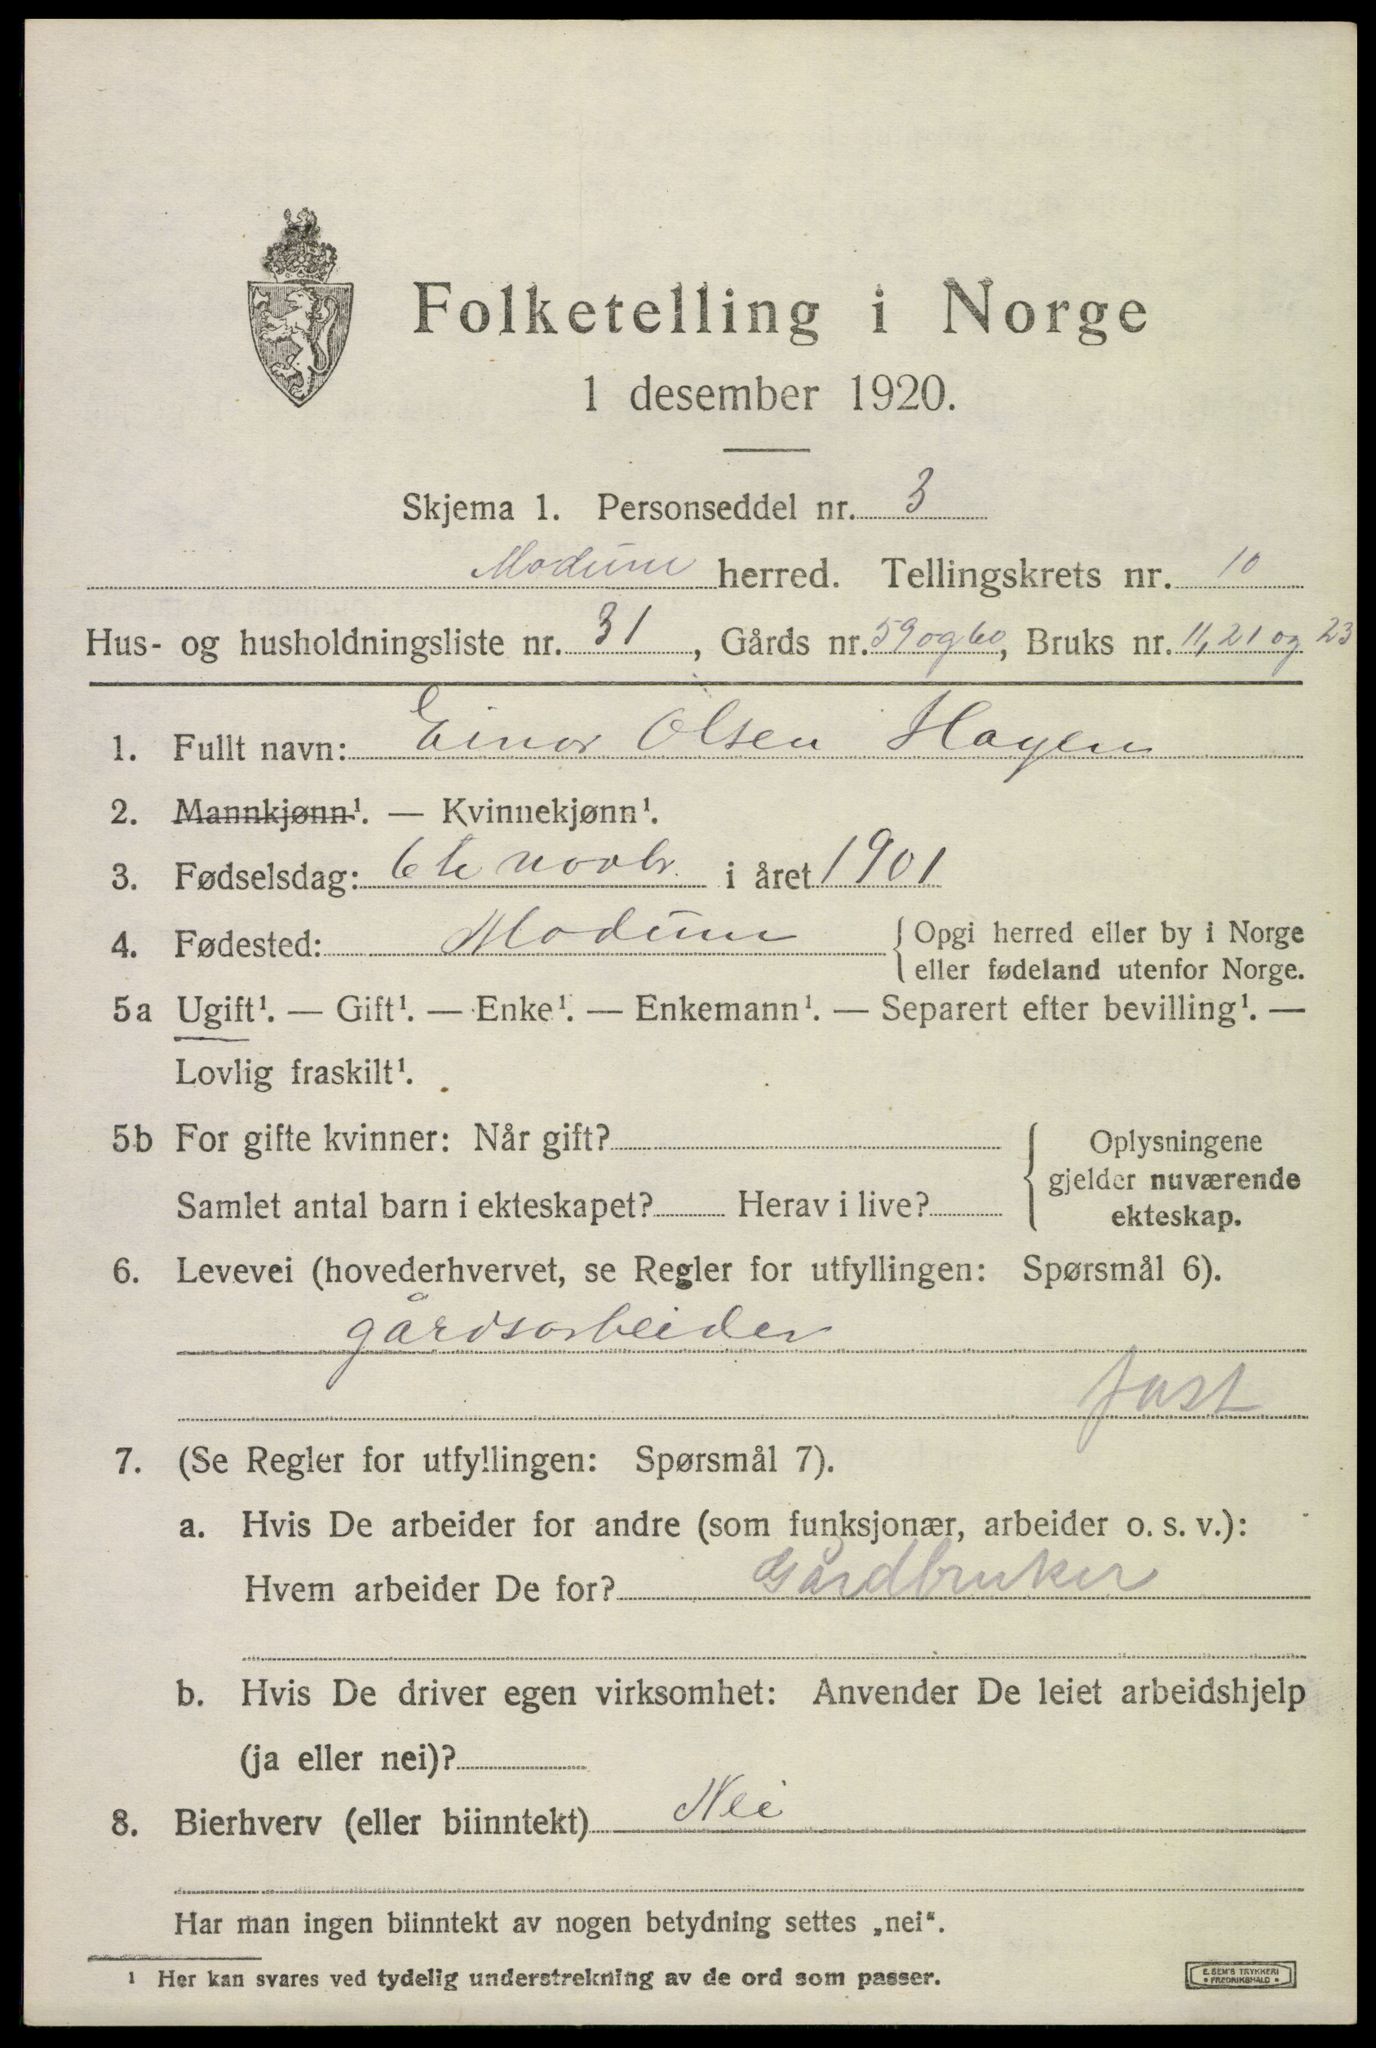 Folketelling i Norge
1 desember 1920.
Skjema 1. Personseddel nr. 3
Modum herred. Tellingskrets nr. 10
Hus- og husholdningsliste nr. 31, Gårds nr. 59 og 60, Bruks nr. 11, 21 og 23
1. Fullt navn: Einar Olsen Hagen
2. Mannkjønn¹. — Kvinnekjønn¹.
3. Fødselsdag: 6te novbr. i året 1901
4. Fødested: Modum { Opgi herred eller by i Norge
eller fødeland utenfor Norge.
5a Ugift¹. — Gift¹. — Enke¹. — Enkemann¹. — Separert efter bevilling¹. —
Lovlig fraskilt¹.
5b For gifte kvinner: Når gift? { Oplysningene
gjelder nuværende
Samlet antal barn i ekteskapet? Herav i live? ekteskap.
6. Levevei (hovederhvervet, se Regler for utfyllingen: Spørsmål 6).
gårdsarbeider
fast
7. (Se Regler for utfyllingen: Spørsmål 7).
a. Hvis De arbeider for andre (som funksjonær, arbeider o. s. v.):
Hvem arbeider De for? Gårdbruker
b. Hvis De driver egen virksomhet: Anvender De leiet arbeidshjelp
(ja eller nei)?
8. Bierhverv (eller biinntekt) Nei
Har man ingen biinntekt av nogen betydning settes „nei“.
¹ Her kan svares ved tydelig understrekning av de ord som passer.
E. SEM'S TRYKKERI
• FREDRIKSHALD •